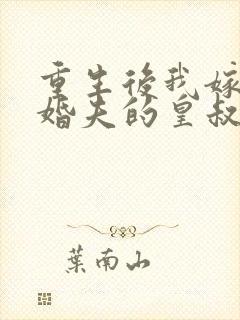 重生後我嫁
婚夫的皇叔
葉南山